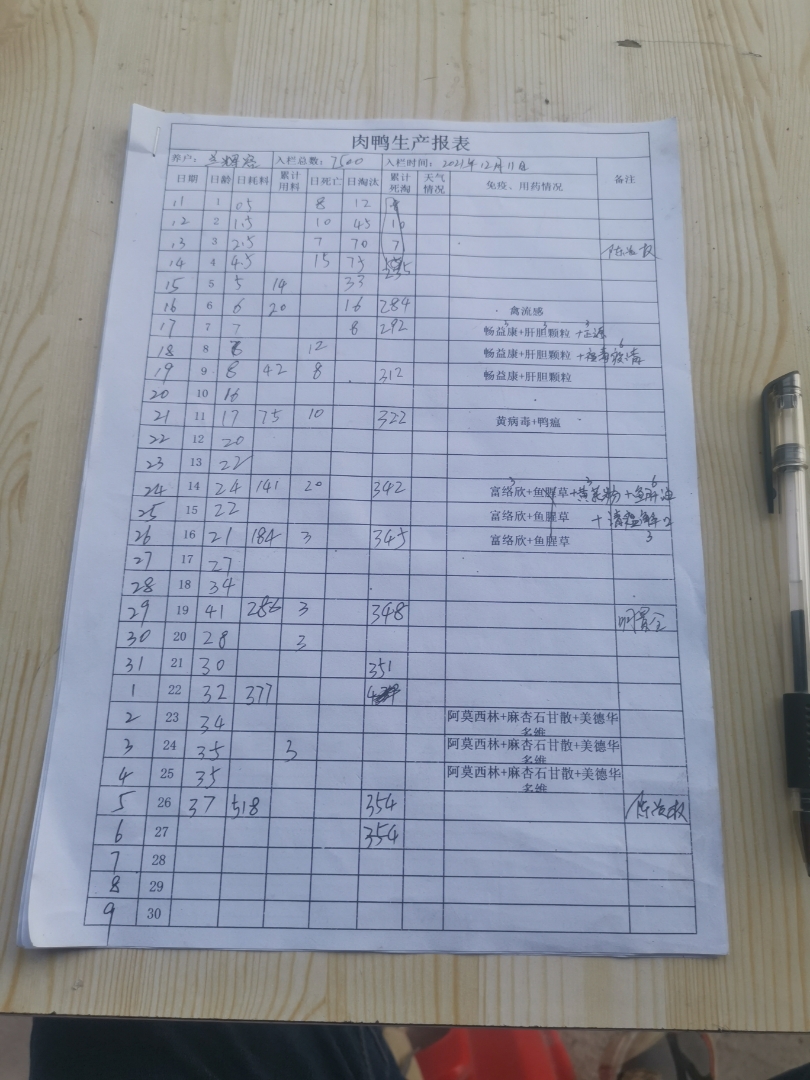 肉鸭生产报表
养户： 入栏总数：7500 入栏时间：2021年12月11日 备注
日期 日龄 日耗料 累计用料 日死亡 日淘汰 累计死淘 天气情况 免疫、用药情况
11 1 0.5 8 12
12 2 1.5 10 45 10
13 3 2.5 7 70 7
14 4 4.5 15 75 235
15 5 5 14 33
16 6 6 20 16 284 禽流感
17 7 7 8 292 畅益康+肝胆颗粒
18 8 8 12 畅益康+肝胆颗粒
19 9 8 42 8 312 畅益康+肝胆颗粒
20 10 16
21 11 17 75 10 322 黄病毒+鸭瘟
22 12 20
23 13 22
24 14 24 141 20 342 富络欣+鱼腥草
25 15 22 富络欣+鱼腥草
26 16 21 184 3 345 富络欣+鱼腥草 3
27 17 27
28 18 34
29 19 41 286 3 348
30 20 28 3
31 21 30 351
1 22 32 377
2 23 34 阿莫西林+麻杏石甘散+美德华多维
3 24 35 3 阿莫西林+麻杏石甘散+美德华多维
4 25 35 阿莫西林+麻杏石甘散+美德华多维
5 26 37 518 354
6 27 354
7 28
8 29
9 30